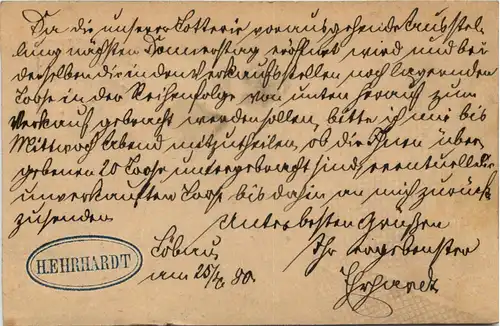 Da die unserer Lotterie vorausgehende Ausstel-
lung nächsten Donnerstag eröffnet wird und bei
derselben die in den Verkaufsstellen noch lagernden
Loose in der Reihenfolge von unten herauf zum
Verkauf gebracht werden sollen, bitte ich mir bis
Mittwoch Abend mitzutheilen, ob die Ihnen über
gebenen 20 Loose untergebracht sind, eventuell die
unverkauften Loose bis dahin an mich zurück
zusenden.
Unter besten Grüßen
Löbau Ihr ergebenster
am 25/ 80. Ehrhardt
H.EHRHARDT